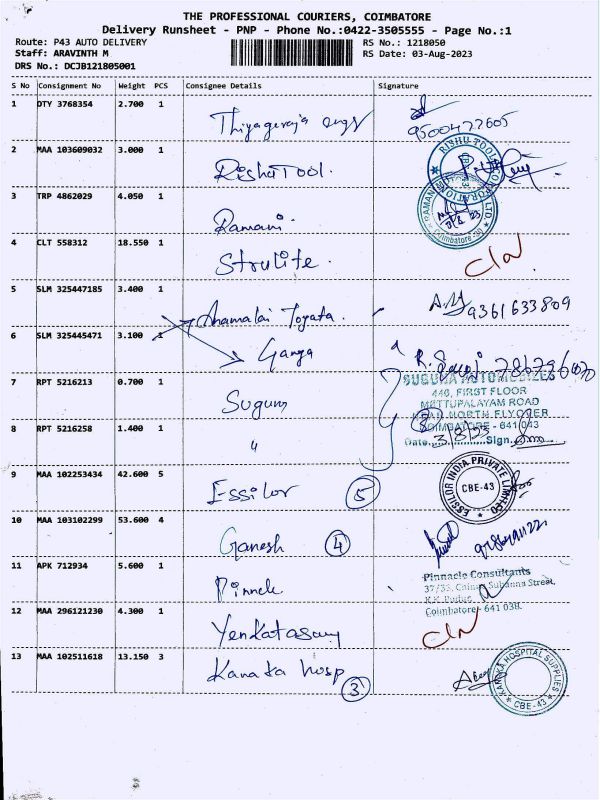 THE PROFESSIONAL COURIERS, COIMBATORE
Delivery Runsheet - PNP - Phone No.:0422-3505555 - Page No.:1
Route: P43 AUTO DELIVERY
RS No.: 1218050
Staff: ARAVINTH M
RS Date: 03-Aug-2023
DRS No.: DCJB121805001
S No Consignment No Weight PCS Consignee Details Signature
1 DTY 3768354 2.700 1
Thiyageraja engs
9500477605
2 MAA 103609032 3.000 1
Risha Tool.
3 TRP 4862029 4.050 1
Ramani.
Coimbatore
4 CLT 558312 18.550 1
Strulite.
5 SLM 325447185 3.400 1
Anamalai Toyata.
9361633809
6 SLM 325445471 3.100 1
Ganga
7 RPT 5216213 0.700 1
Sugum
440, FIRST FLOOR
METTUPALAYAM ROAD
NEAR NORTH FLYOVER
COIMBATORE - 641 043
8 RPT 5216258 1.400 1
"
2
Date 3/8/23 Sign.
9 MAA 102253434 42.600 5
Essilor 5
ESSILOR INDIA PRIVATE LIMITED
CBE-43
10 MAA 103102299 53.600 4
Ganesh 4
11 APK 712934 5.600 1
Pinnacle Consultants
Pinnele
Coimbatore 641 038.
12 MAA 296121230 4.300 1
Venkatasamy
13 MAA 102511618 13.150 3
Kanaka hosp
3
KANAKA HOSPITAL SUPPLIES
CBE-43